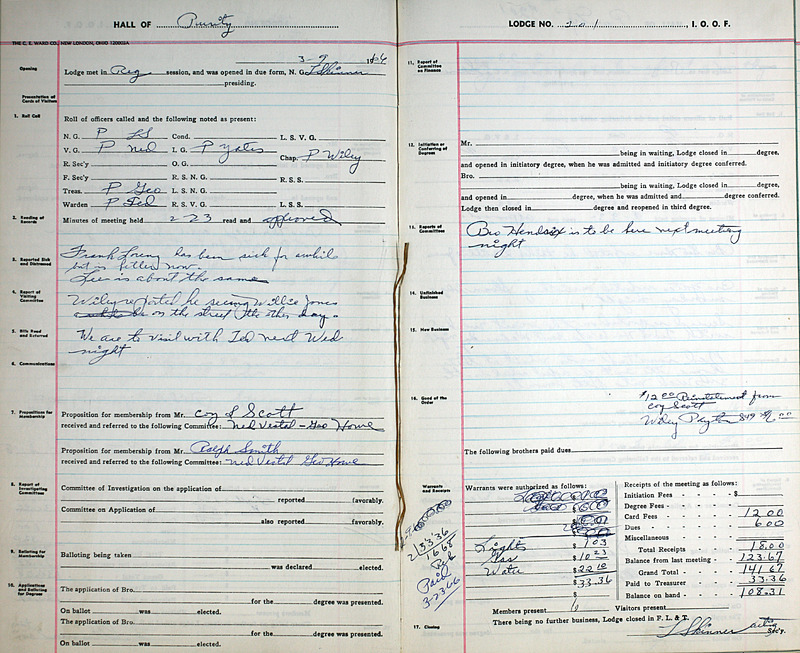 HALL OF Purity
THE C. E. WARD CO., NEW LONDON, OHIO 120003A
3-9 1966
Opening
Lodge met in Reg session, and was opened in due form, N. G. L Skinner
presiding.
Presentation of Cards of Visitors
1. Roll Call
Roll of officers called and the following noted as present:
N. G. P LS Cond. L. S. V. G.
V. G. P Ned I. G. P Yates Chap. P Wiley
R. Sec'y O. G.
F. Sec'y R. S. N. G. R. S. S.
Treas. P Geo L. S. N. G.
Warden P Ted R. S. V. G. L. S. S.
2. Reading of Records
Minutes of meeting held 2-23 read and approved
3. Reported Sick and Distressed
Frank has been sick for awhile
but is better now.
Lee is about the same
4. Report of Visiting Committee
Wiley reported he seeing Willie Jones
on the street the other day.
5. Gifts Read and Referred
We are to visit with Ted next Wed
night
6. Communications
7. Propositions for Membership
Proposition for membership from Mr. Coy L Scott
received and referred to the following Committee: Ned Vestal - Geo Howe
Proposition for membership from Mr. Ralph Smith
received and referred to the following Committee: Ned Vestal Geo Howe
8. Report of Investigating Committees
Committee of Investigation on the application of
reported favorably.
Committee on Application of
also reported favorably.
9. Balloting for Membership
Balloting being taken
was declared elected.
10. Applications and Balloting for Degrees
The application of Bro.
for the degree was presented.
On ballot was elected.
The application of Bro.
for the degree was presented.
On ballot was elected.
LODGE NO. 201, I. O. O. F.
11. Report of Committee on Finance
12. Initiation or Conferring of Degrees
Mr.
being in waiting, Lodge closed in degree,
and opened in initiatory degree, when he was admitted and initiatory degree conferred.
Bro.
being in waiting, Lodge closed in degree,
and opened in degree, when he was admitted and degree conferred.
Lodge then closed in degree and reopened in third degree.
13. Reports of Committees
Bro Hendrix is to be here next meeting
night
14. Unfinished Business
15. New Business
16. Good of the Order
$12.00 Reinstatement from
Coy Scott
Wiley
The following brothers paid dues
Warrants and Receipts
2/33.36
16.68
Paid
3-23-66
Warrants were authorized as follows:
Lights $ 1.03
Gas $ 10.23
Water $ 22.10
$ 33.36
Receipts of the meeting as follows:
Initiation Fees - - - $
Degree Fees - - - -
Card Fees - - - - 12.00
Dues - - - - 6.00
Miscellaneous - - - -
Total Receipts - - 18.00
Balance from last meeting - 123.67
Grand Total - - - 141.67
Paid to Treasurer - - 33.36
Balance on hand - - - 108.31
Members present 6 Visitors present
17. Closing
There being no further business, Lodge closed in F. L. & T.
L Skinner acting
Sec'y.